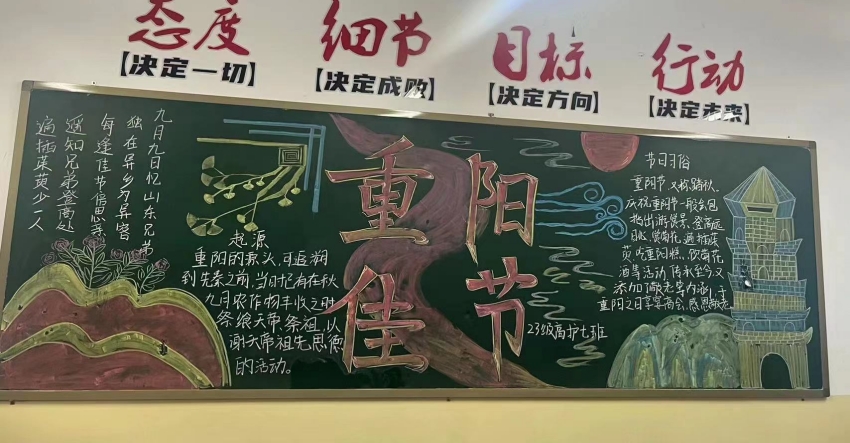 态度
【决定一切】
细节
【决定成败】
目标
【决定方向】
行动
【决定未来】
九月九日忆山东兄弟
独在异乡为异客
每逢佳节倍思亲
遥知兄弟登高处
遍插茱萸少一人
起源
重阳的源头,可追溯
到先秦之前,当时已有在秋
九月农作物丰收之时
祭飨天帝祭祖,以
谢天帝、祖先恩德
的活动。
重阳
佳节
23级高护七班
节日习俗
重阳节,又称踏秋,
庆祝重阳节一般会包
括出游赏景、登高远
眺、赏菊花、遍插茱
萸、吃重阳糕、饮菊花
酒等活动,传承至今,又
添加了敬老等内涵,于
重阳之日享宴高会,感恩敬老。